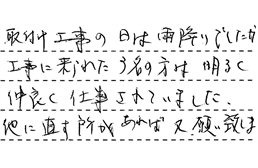 取付け工事の日は雨降りでしたが
工事に来られた3名の方は明るく
仲良く仕事されていました.
他に直す所があれば又願い致しま